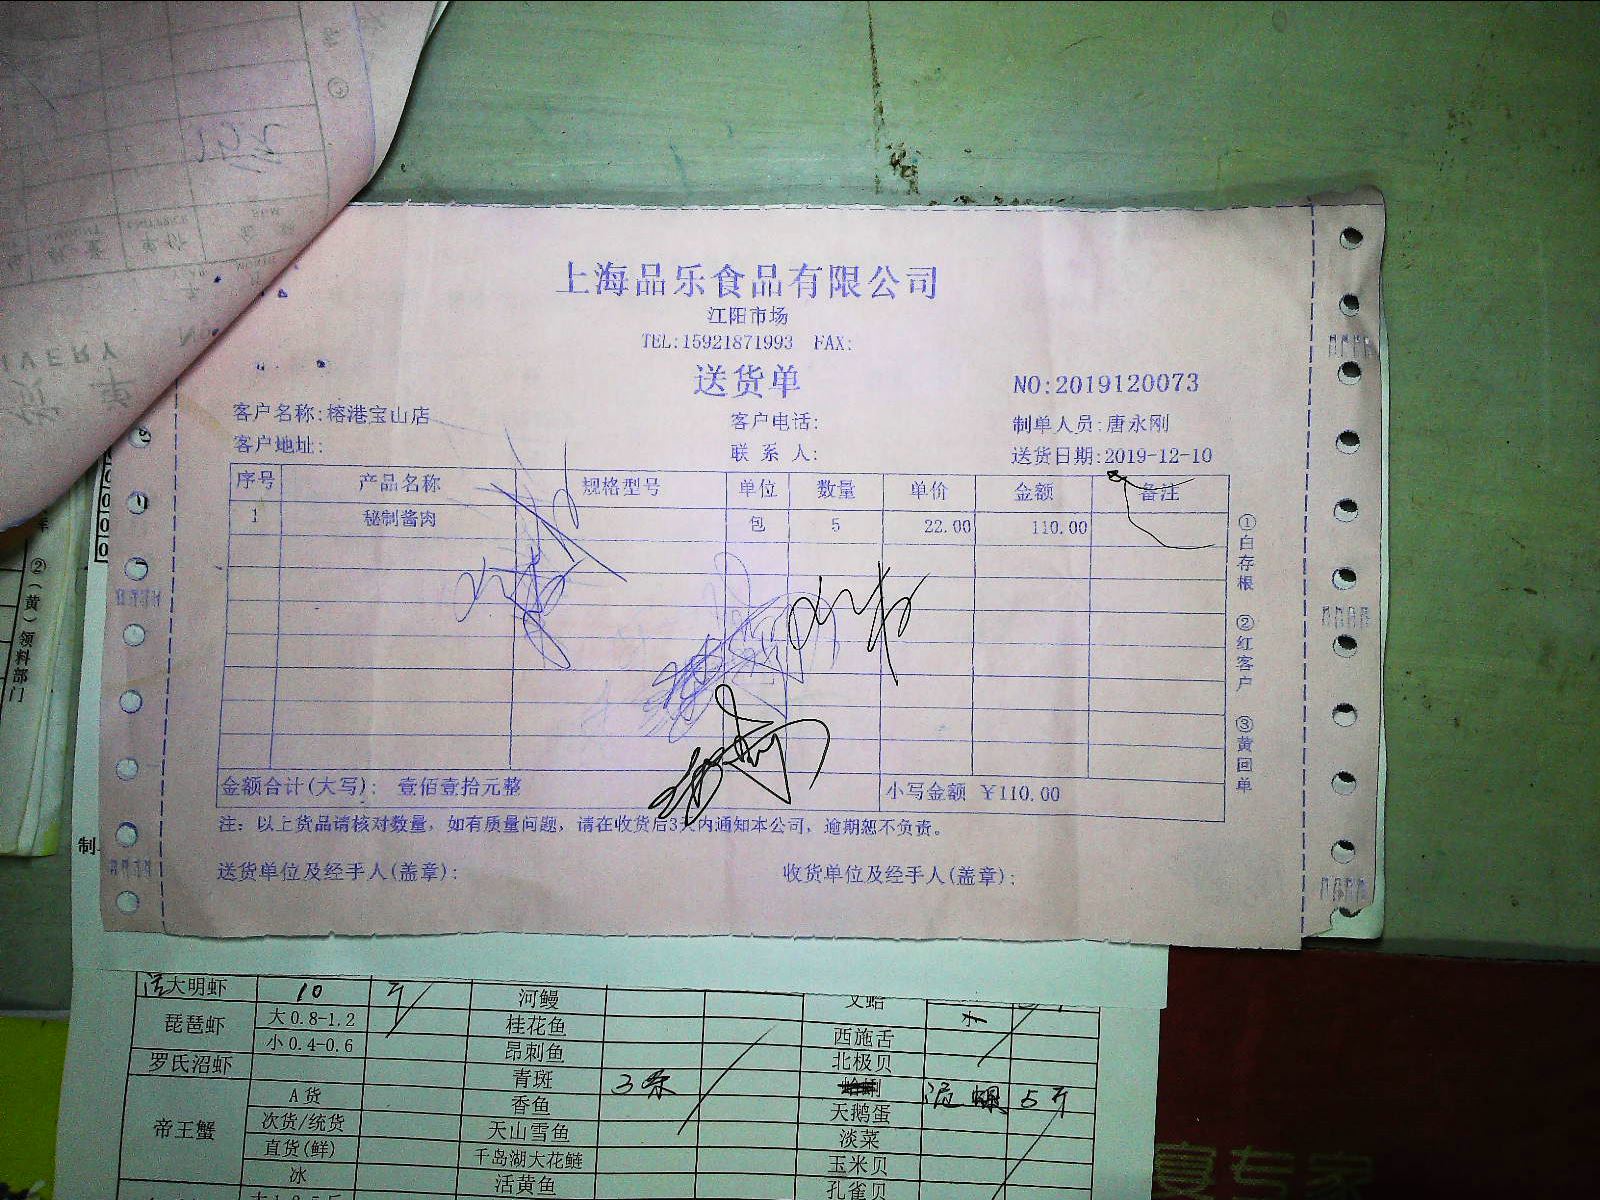 上海品乐食品有限公司
江阳市场
TEL:15921871993 FAX:
送货单
NO:2019120073
客户名称:榕港宝山店 客户电话: 制单人员:唐永刚
客户地址: 联 系 人: 送货日期:2019-12-10
序号 产品名称 规格型号 单位 数量 单价 金额 备注
1 秘制酱肉 包 5 22.00 110.00
金额合计(大写): 壹佰壹拾元整 小写金额 ¥110.00
注: 以上货品请核对数量, 如有质量问题, 请在收货后3天内通知本公司, 逾期恕不负责。
送货单位及经手人(盖章): 收货单位及经手人(盖章):
①白存根 ②红客户 ③黄回单
②(黄)领料部门
制
LIVERY
大明虾 10 斤 河鳗 文蛤
琵琶虾 大0.8-1.2 桂花鱼 西施舌
小0.4-0.6 昂刺鱼 北极贝
罗氏沼虾 青斑 3条 泥螺 5斤
帝王蟹 A货 香鱼 天鹅蛋
次货/统货 天山雪鱼 淡菜
直货(鲜) 千岛湖大花鲢 玉米贝
冰 活黄鱼 孔雀贝
宴专家